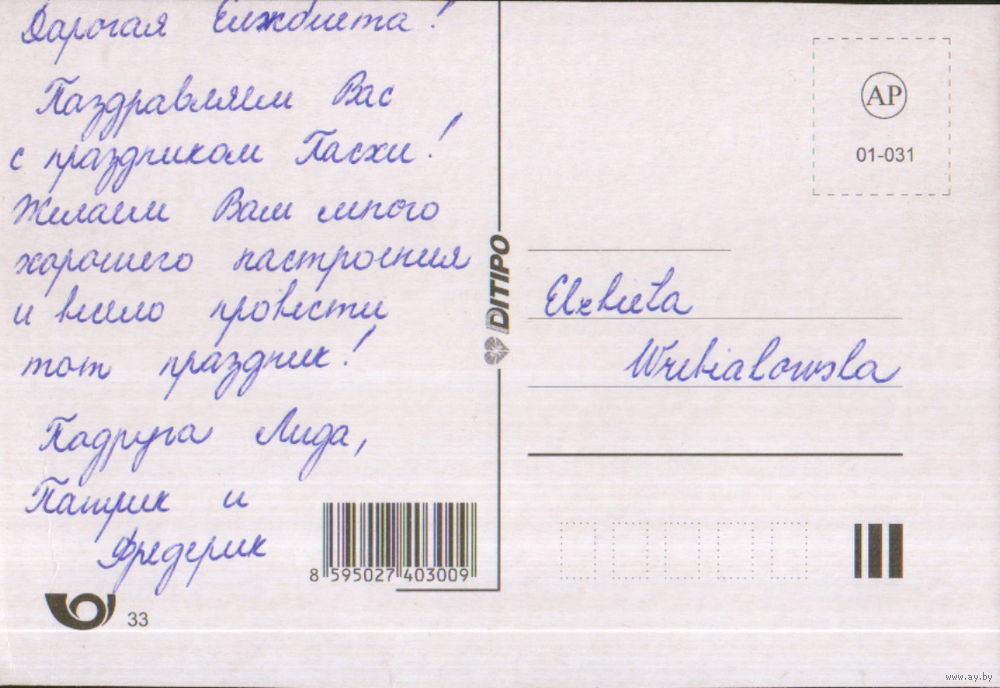 Дарогая Елжбиета!
Паздравляем Вас
с праздником Пасхи!
Желаем Вам много
хорошего настроения
и весело провести
тот праздник!
Падруга Лида,
Патрик и
Фредерик
AP
01-031
DITIPO
Elzbieta
8 595027 403009
33
www.ay.by